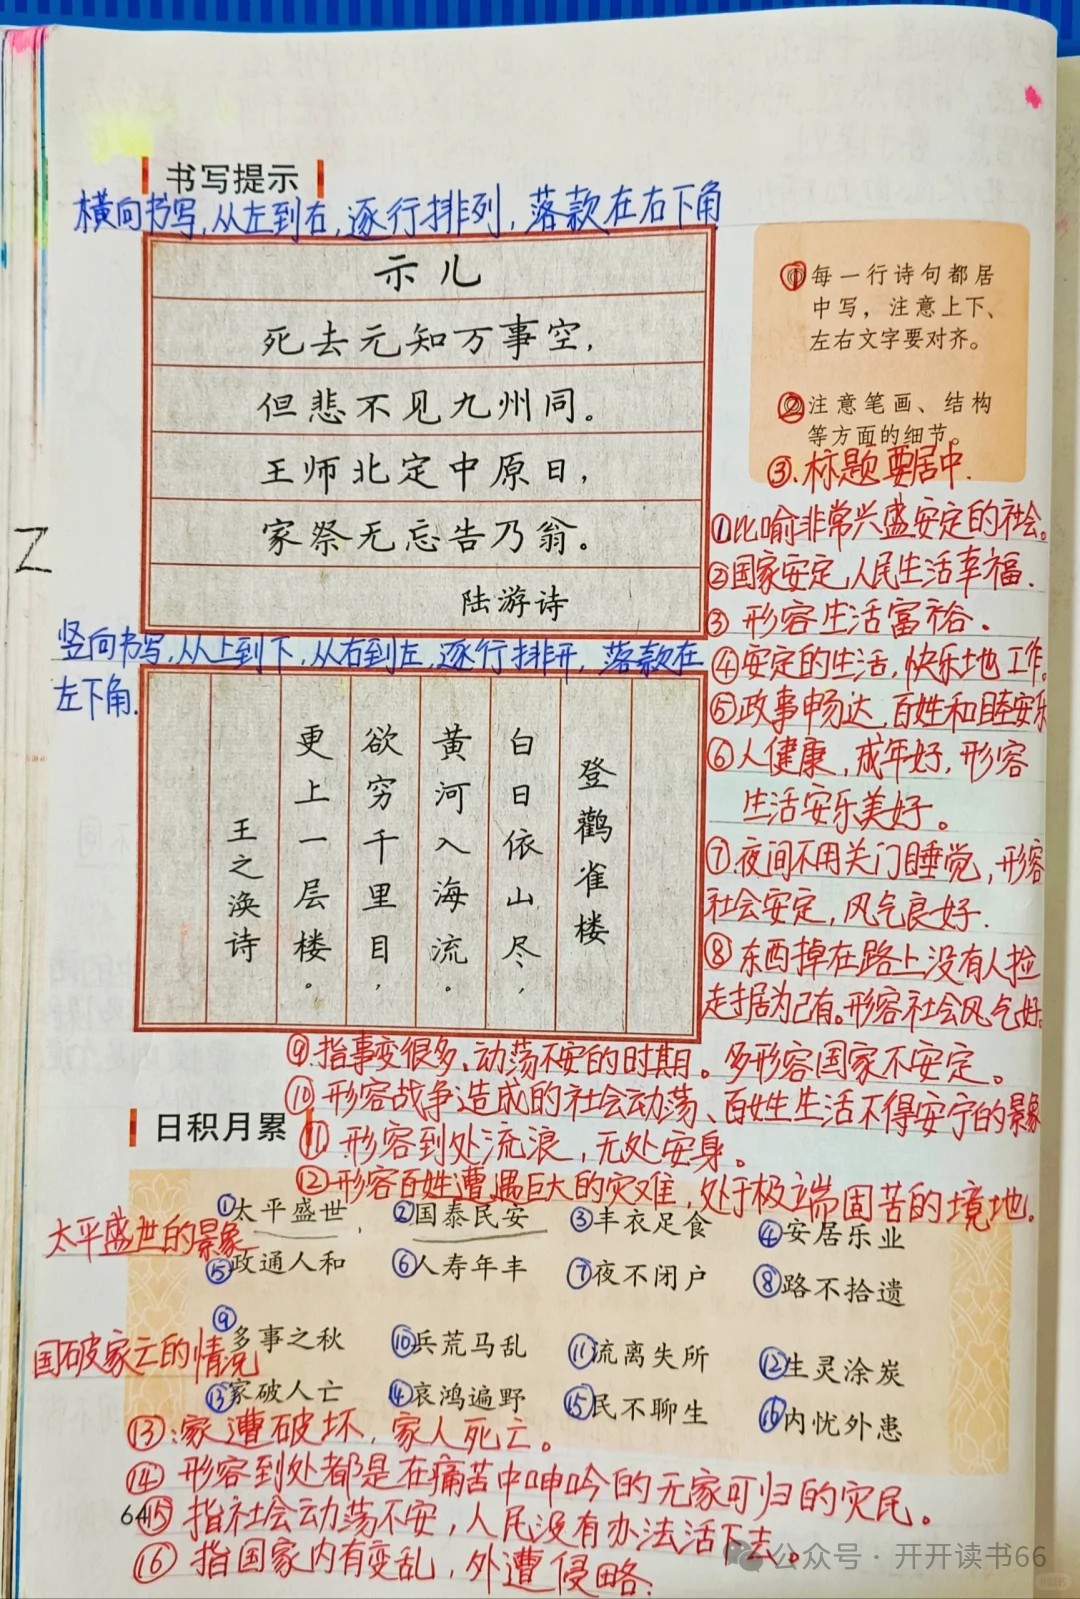 书写提示
横向书写,从左到右,逐行排列,落款在右下角
示儿
死去元知万事空，
但悲不见九州同。
王师北定中原日，
家祭无忘告乃翁。
陆游诗
①每一行诗句都居
中写，注意上下、
左右文字要对齐。
②注意笔画、结构
等方面的细节。
③.标题要居中.
竖向书写,从上到下,从右到左,逐行排开,落款在
左下角.
登鹳雀楼
白日依山尽，
黄河入海流。
欲穷千里目，
更上一层楼。
王之涣诗
①比喻非常兴盛安定的社会。
②国家安定,人民生活幸福.
③形容生活富裕.
④安定的生活,快乐地工作。
⑤政事畅达,百姓和睦安乐
⑥人健康,成年好,形容
生活安乐美好。
⑦.夜间不用关门睡觉,形容
社会安定,风气良好.
⑧东西掉在路上没有人捡
走据为己有。形容社会风气好.
⑨.指事变很多、动荡不安的时期。多形容国家不安定。
⑩形容战争造成的社会动荡、百姓生活不得安宁的景象
⑪形容到处流浪,无处安身。
⑫形容百姓遭遇巨大的灾难,处于极端困苦的境地.
日积月累
太平盛世的景象
①太平盛世 ②国泰民安 ③丰衣足食 ④安居乐业
⑤政通人和 ⑥人寿年丰 ⑦夜不闭户 ⑧路不拾遗
国破家亡的情况
⑨多事之秋 ⑩兵荒马乱 ⑪流离失所 ⑫生灵涂炭
⑬家破人亡 ⑭哀鸿遍野 ⑮民不聊生 ⑯内忧外患
⑬:家遭破坏,家人死亡。
⑭形容到处都是在痛苦中呻吟的无家可归的灾民。
64
⑮指社会动荡不安,人民没有办法活下去。
⑯指国家内有变乱,外遭侵略.
公众号·开开读书66
Z